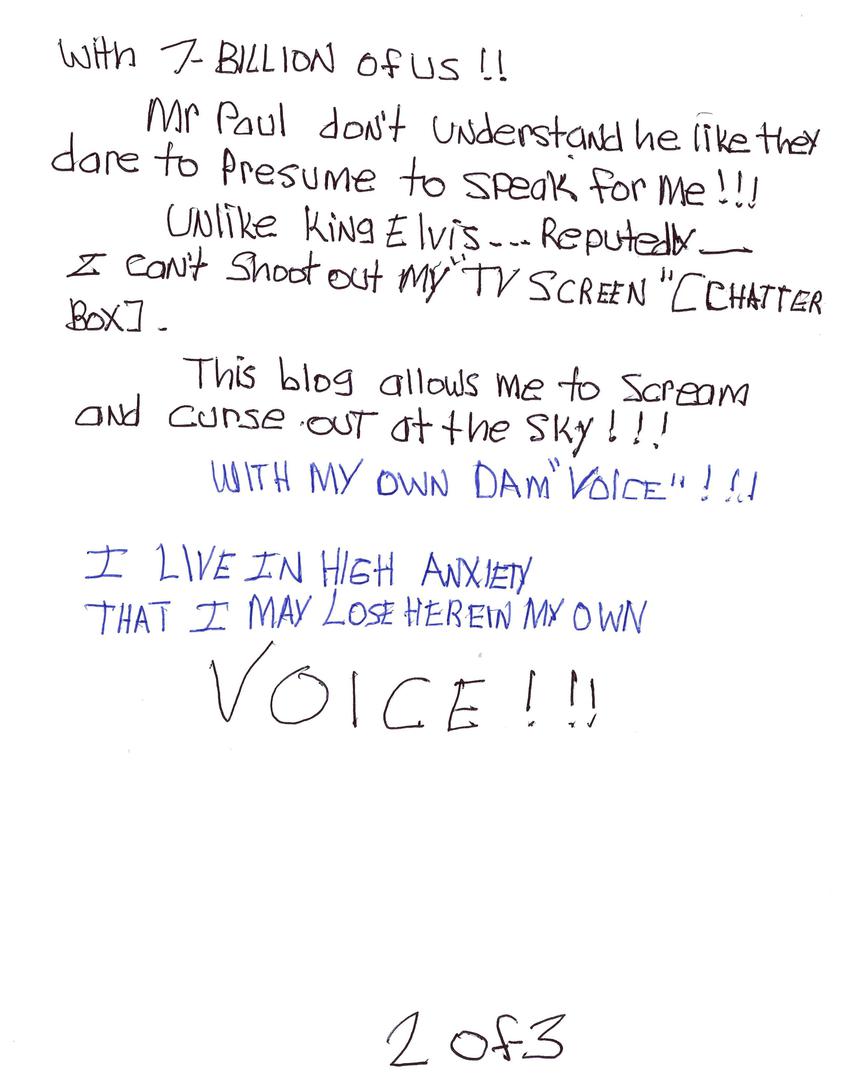 With 7-BILLION of us !!
Mr Paul don't understand he like they
dare to presume to speak for me!!!
Unlike King Elvis --- Reputedly —
I can't shoot out my "TV SCREEN" [CHATTER
BOX].
This blog allows me to scream
and curse out at the sky!!!
WITH MY OWN DAM "VOICE" !!!
I LIVE IN HIGH ANXIETY
THAT I MAY LOSE HEREIN MY OWN
VOICE !!!
2 of 3